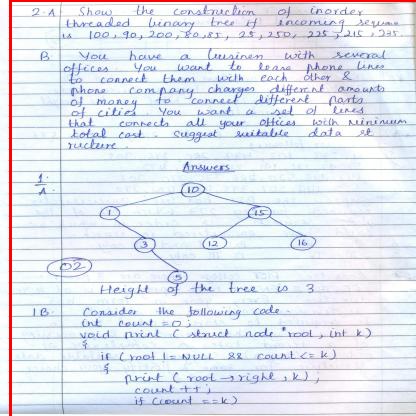 2. A Show the construction of inorder
threaded binary tree if incoming
is 100, 90, 200, 80, 85, 95, 250, 225, 215, 235.
B. You have a business with several
offices. You want to lease phone lines
to connect them with each other &
phone company charges different amounts
of money to connect different parts
of cities You want a set of lines
that connects all your offices with minimum
total cost. suggest suitable data st
ructure.
Answers
1.
A.
10
1 15
3 12 16
02
5
Height of the tree is 3
1B. Consider the following code.
int count = 0;
void print ( struct node *root, int k)
{
if (root != NULL && count <= k)
{
print ( root → right, k);
count ++;
if (count == k)